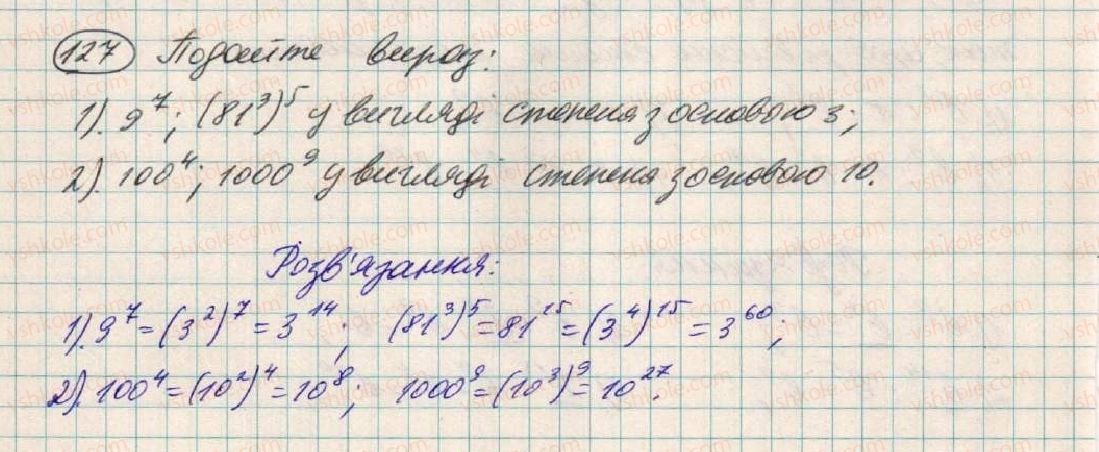 127 Подайте вираз:
1). 9⁷; (81³)⁵ у вигляді степеня з основою 3;
2). 100⁴; 1000⁹ у вигляді степеня з основою 10.
Розв'язання:
1). 9⁷ = (3²)⁷ = 3¹⁴; (81³)⁵ = 81¹⁵ = (3⁴)¹⁵ = 3⁶⁰;
2). 100⁴ = (10²)⁴ = 10⁸; 1000⁹ = (10³)⁹ = 10²⁷.